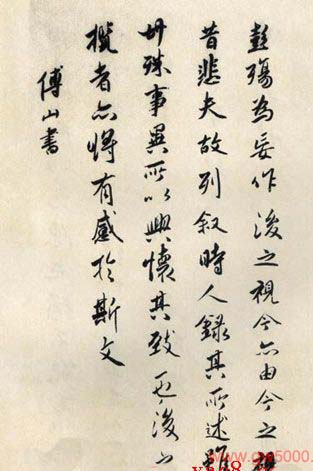 彭殤為妄作後之視今亦由今之視
昔悲夫故列敘時人錄其所述雖
世殊事異所以興懷其致一也後之
攬者亦將有感於斯文
傅山書